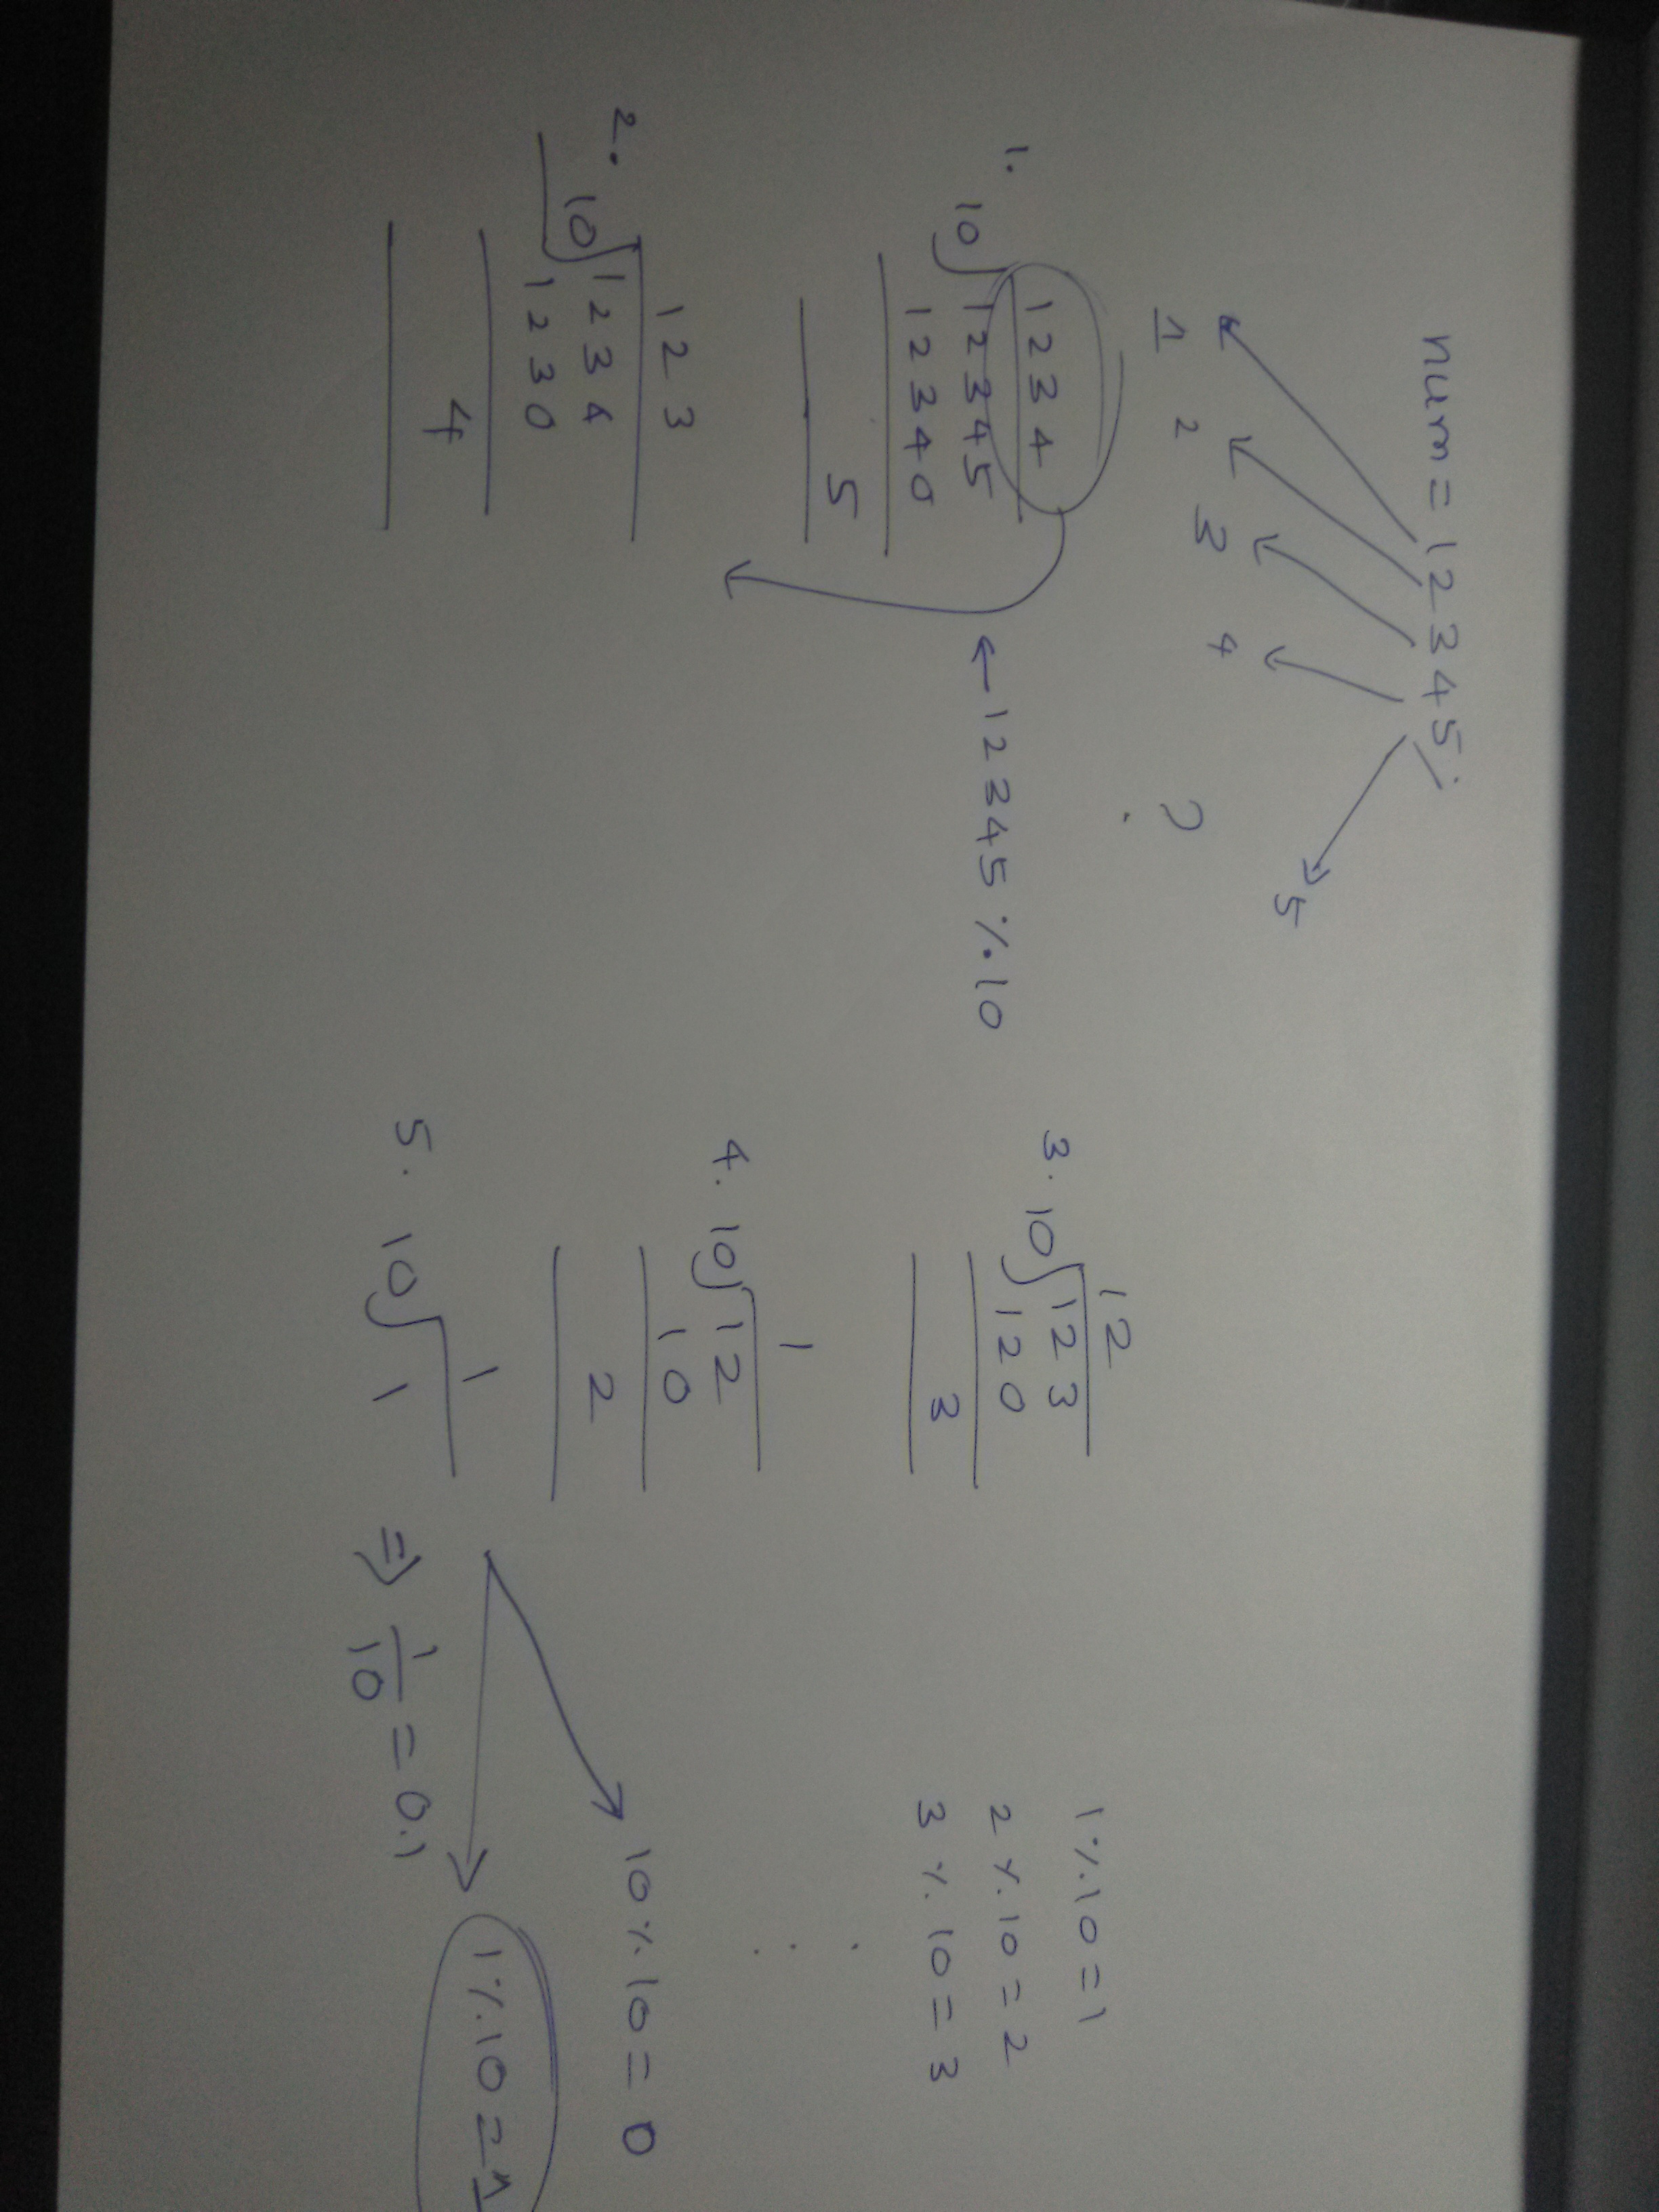 num = 12345;
5
1 2 3 4
?
1.
1234
10 12345
12340
5
← 12345 % 10
2.
123
10 1234
1230
4
3.
12
10 123
120
3
4.
1
10 12
10
2
5.
1
10 1 ⇒ 1/10 = 0.1
1 % 10 = 1
2 % 10 = 2
3 % 10 = 3
.
.
.
10 % 10 = 0
1 % 10 = 1